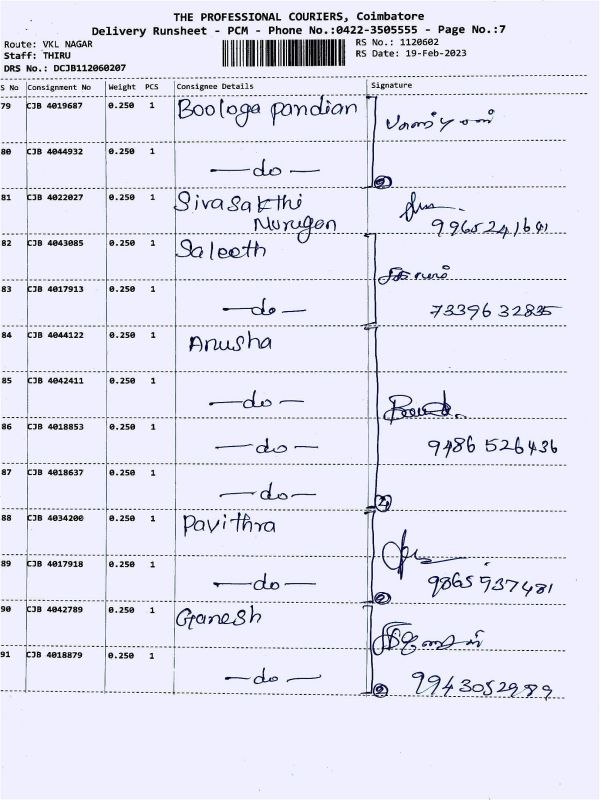 THE PROFESSIONAL COURIERS, Coimbatore
Delivery Runsheet - PCM - Phone No.:0422-3505555 - Page No.:7
Route: VKL NAGAR RS No.: 1120602
Staff: THIRU RS Date: 19-Feb-2023
DRS No.: DCJB112060207
S No Consignment No Weight PCS Consignee Details Signature
79 CJB 4019687 0.250 1 Boologa pandian
80 CJB 4044932 0.250 1 —do—
81 CJB 4022027 0.250 1 Sivasakthi
Murugan
82 CJB 4043085 0.250 1 Saleeth
83 CJB 4017913 0.250 1 —do— 7339632835
84 CJB 4044122 0.250 1 Anusha
85 CJB 4042411 0.250 1 —do—
86 CJB 4018853 0.250 1 —do— 9486 526436
87 CJB 4018637 0.250 1 —do— 4
88 CJB 4034200 0.250 1 Pavithra
89 CJB 4017918 0.250 1 —do— 2 9865 937481
90 CJB 4042789 0.250 1 Ganesh
91 CJB 4018879 0.250 1 —do— 2 9943052989